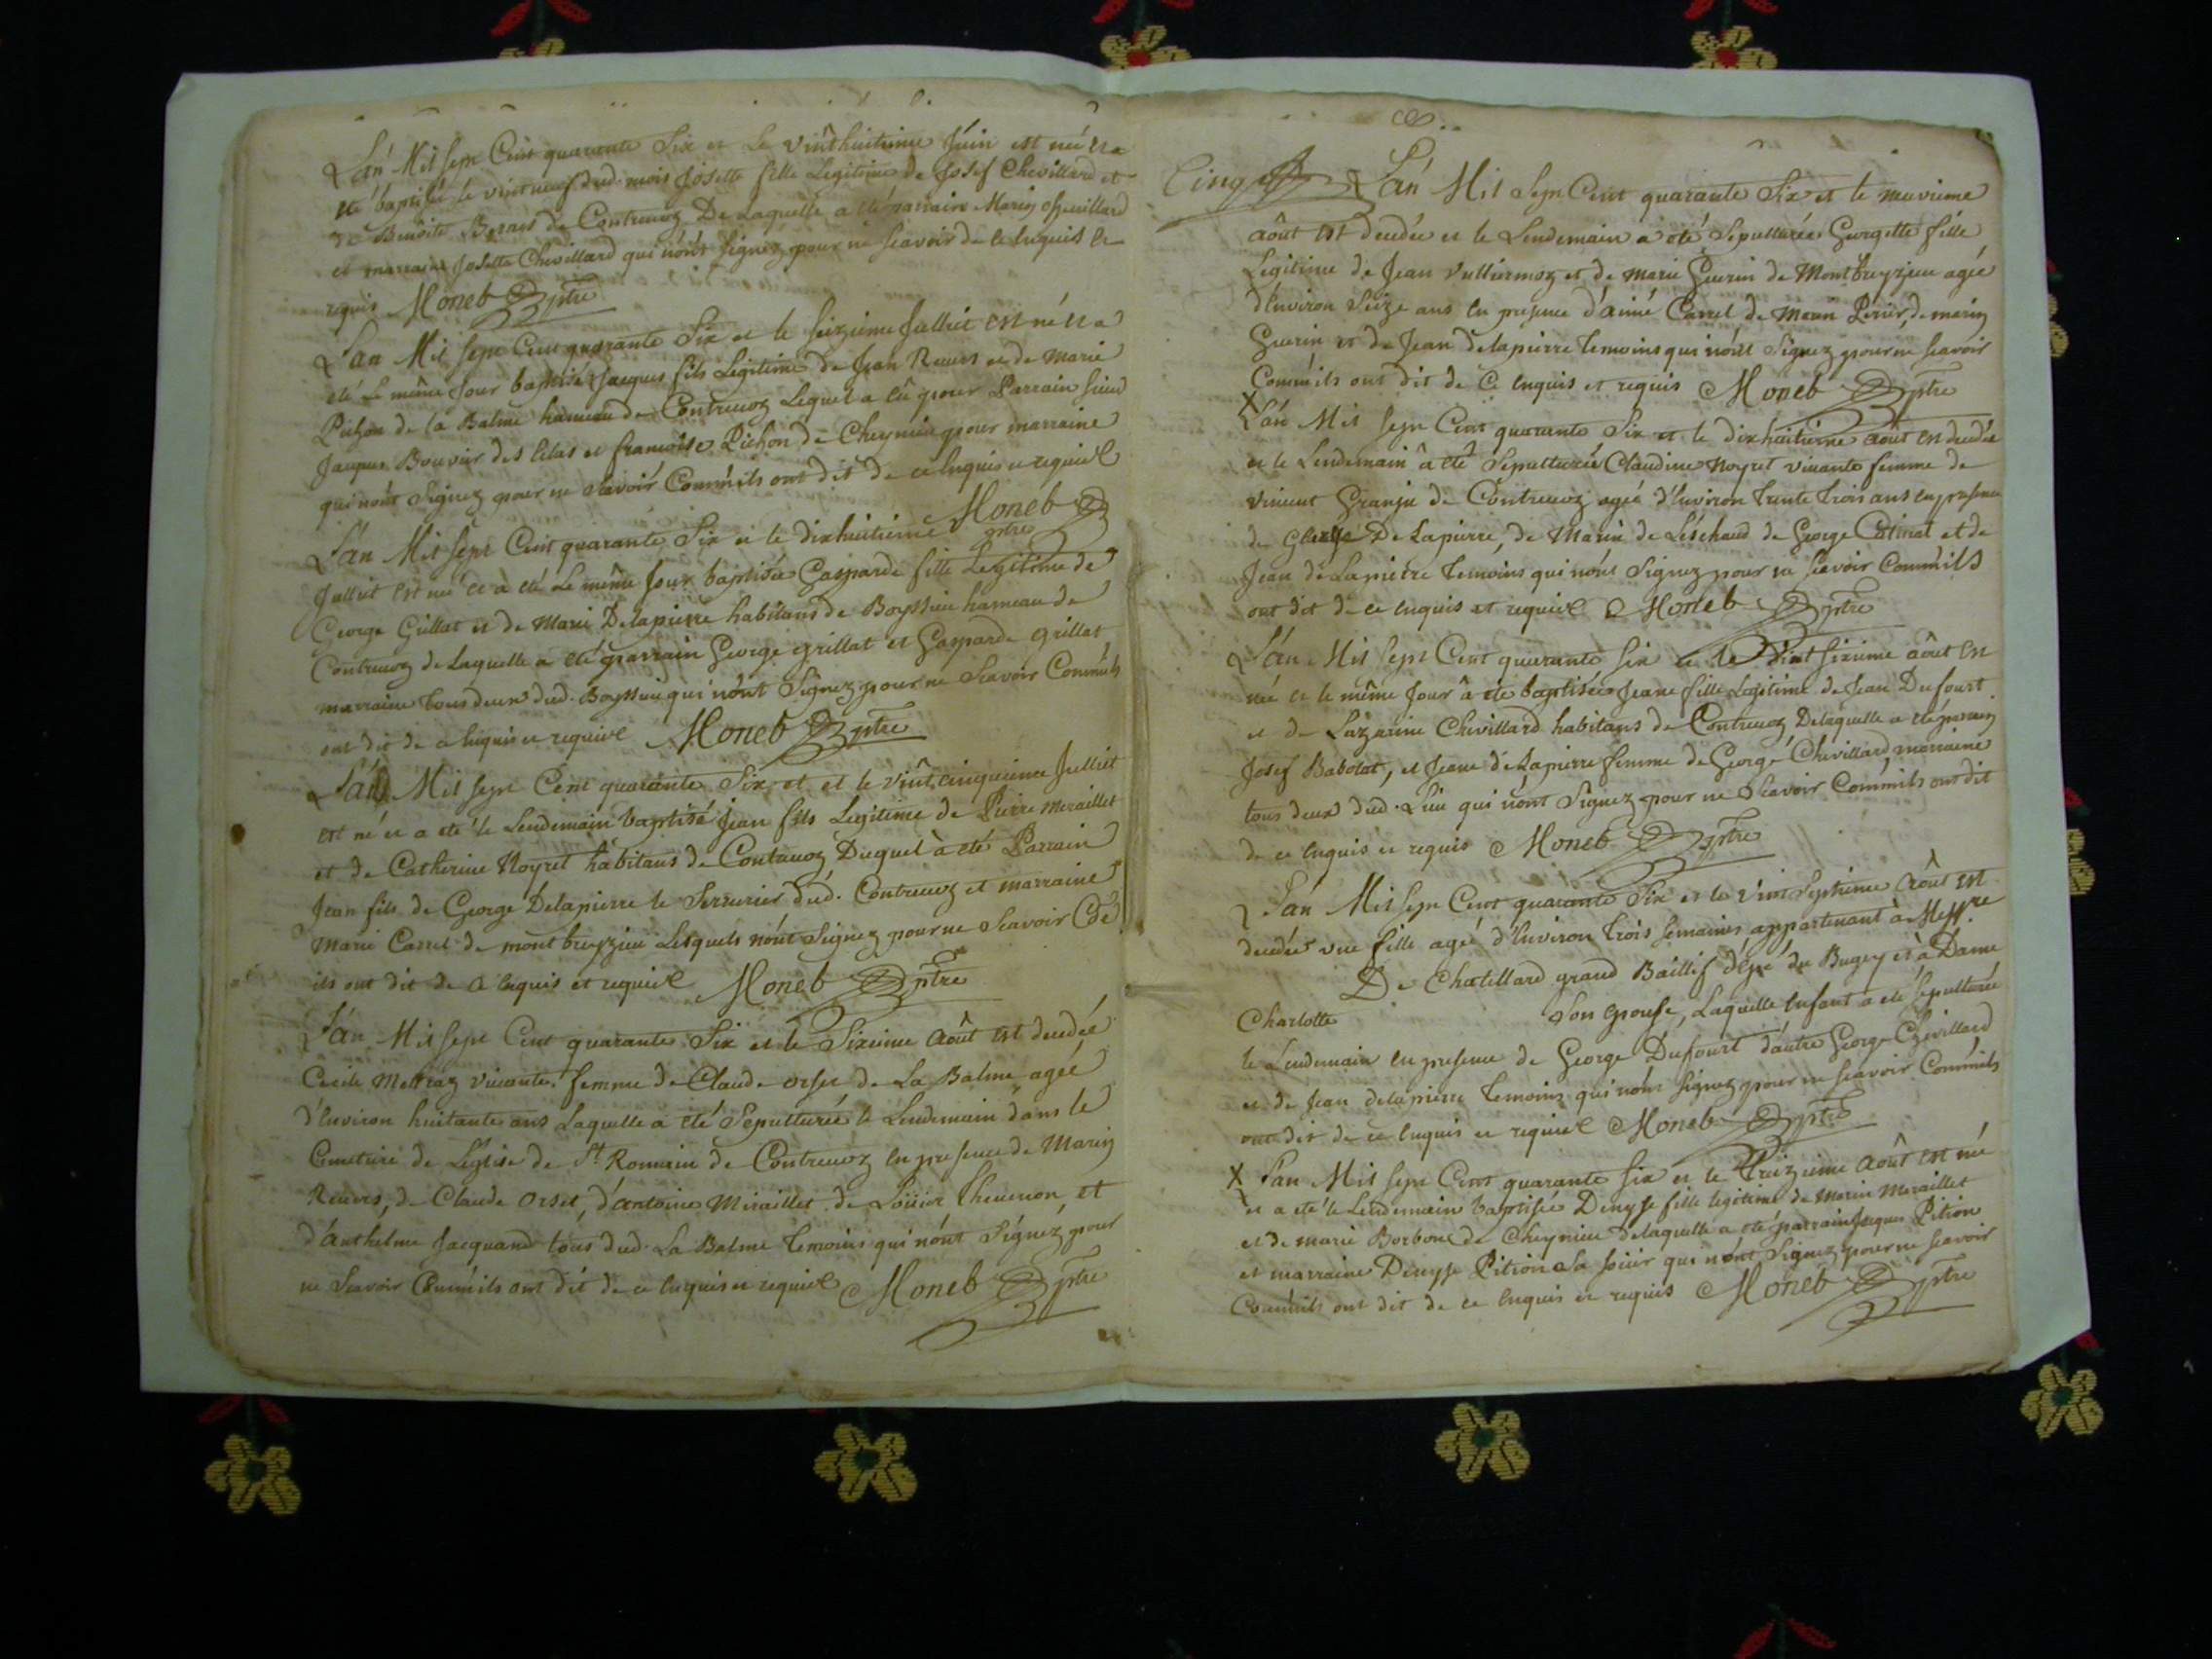 L'an Mil sept Cent quarante Six et le vinthuitieme Juin est née et a
eté baptisée le vintneuf dud. mois Josette fille Legitime de Josef Chevillard et
de Benoite de Contrevoz De Laquelle a eté parrain Marin Chevillard
et marraine Josette Chevillard qui n'ont signez pour ne scavoir de ce enquis et
requis Moneb ptre
L'an Mil sept Cent quarante Six et le seizieme Julliet est né et a
eté Le même Jour baptisé Jacques fils Legitime de Jean Reuers et de Marie
Pichon de la Balme hameau de Contrevoz Lequel a eû pour Parrain sieur
Jacques Bouvier des et francoise Pichon de Cheynieu pour marraine
qui n'ont Signez pour ne scavoir Comm'ils ont dit de ce enquis et requis
Moneb ptre
L'an Mil sept Cent quarante Six et le dixhuitieme
Julliet est né et a eté Le même Jour baptisée Gasparde fille Legitime de
George Grillat et de Marie Delapierre habitans de Boyssieu hameau de
Contrevoz de Laquelle a eté parrain George grillat et Gasparde grillat
marraine tous deux dud. Boyssieu qui n'ont Signez pour ne Scavoir Comm'ils
ont dit de ce enquis et requis Moneb ptre
L'an Mil sept Cent quarante Six et et le vint cinquieme Julliet
est né et a eté le Lendemain baptisé Jean fils Legitime de Pierre Meraillet
et de Catherine Noyret habitans de Contrevoz Duquel à eté Parrain
Jean fils de George Delapierre le Serrurier dud. Contrevoz et marraine
Marie Carrel de montbreyzieu Lesquels n'ont Signez pour ne Scavoir Coe
ils ont dit de ce enquis et requis Moneb ptre
L'an Mil sept Cent quarante Six et le Sixieme Août est decedée
Cecile Mettraz vivante femme de Claude orset de La Balme agée
d'Environ huitante ans Laquelle a eté Sepulturée le Lendemain dans le
Cemetiere de L'eglise de St Romain de Contrevoz en presence de Marin
Reuers, de Claude Orset, d'antoine Miraillet de Loüior Thevenon, et
d'anthelme Jacquand tous dud. La Balme temoins qui n'ont Signez, pour
ne Scavoir Comm'ils ont dit de ce enquis et requis Moneb ptre
Cinq L'an Mil Sept Cent quarante Six et le neuvieme
août est decedée et le Lendemain a eté Sepulturée Georgette fille
Legitime de Jean Vulliermoz et de marie Guerin de Montbreyzieu agée
d'Environ Seize ans en presence d'aimé Carrel de Perier, de marin
Guerin et de Jean delapierre temoins qui n'ont Signez pour ne scavoir
Comm'ils ont dit de ce enquis et requis Moneb ptre
X
L'an Mil sept Cent quarante Six et le dixhuitieme août est decedée
et le Lendemain â eté Sepulturée Claudine Noyret vivante femme de
vincent Granju de Contrevoz agée d'Environ trente trois ans en presence
de De Lapierre, de Marin de Léschaud de George Catinat et de
Jean de Lapierre temoins qui n'ont Signez pour ne scavoir Comm'ils
ont dit de ce enquis et requis Moneb ptre
L'an Mil sept Cent quarante six et le Vint sixieme aôut est
née et le même Jour â eté baptisée Jeane fille Legitime de Jean Dufourt
et de Lazarine Chevillard habitans de Contrevoz Delaquelle a eté parrain
Josef Babolat, et Jeane deLapierre femme de George Chevillard marraine
tous deux dud. Lieu qui n'ont Signez pour ne Scavoir Comm'ils ont dit
de ce enquis et requis Moneb ptre
L'an Mil sept Cent quarante Six et le vint Septieme Août est
decedée une fille agée d'Environ trois semaines appartenant à Messre
De Chatillard grand Baillif d'épé du Bugey et à Dame
Charlotte son epouse, Laquelle Enfant a eté sepulturée
le Lendemain en presence de George Dufourt d'autre George Chevillard
et de Jean delapierre temoins qui n'ont signez pour ne scavoir Comm'ils
ont dit de ce enquis et requis Moneb ptre
X L'an Mil sept Cent quarante six et le Treizieme Août est née
et a eté le Lendemain baptisée Denyse fille legitime de Marin Meraillet
et de marie Borbone de Cheynieu delaquelle a eté parrain Jaques Pition
et marraine Denyse Pition sa soeur qui n'ont Signez pour ne scavoir
Comm'ils ont dit de ce enquis et requis Moneb ptre